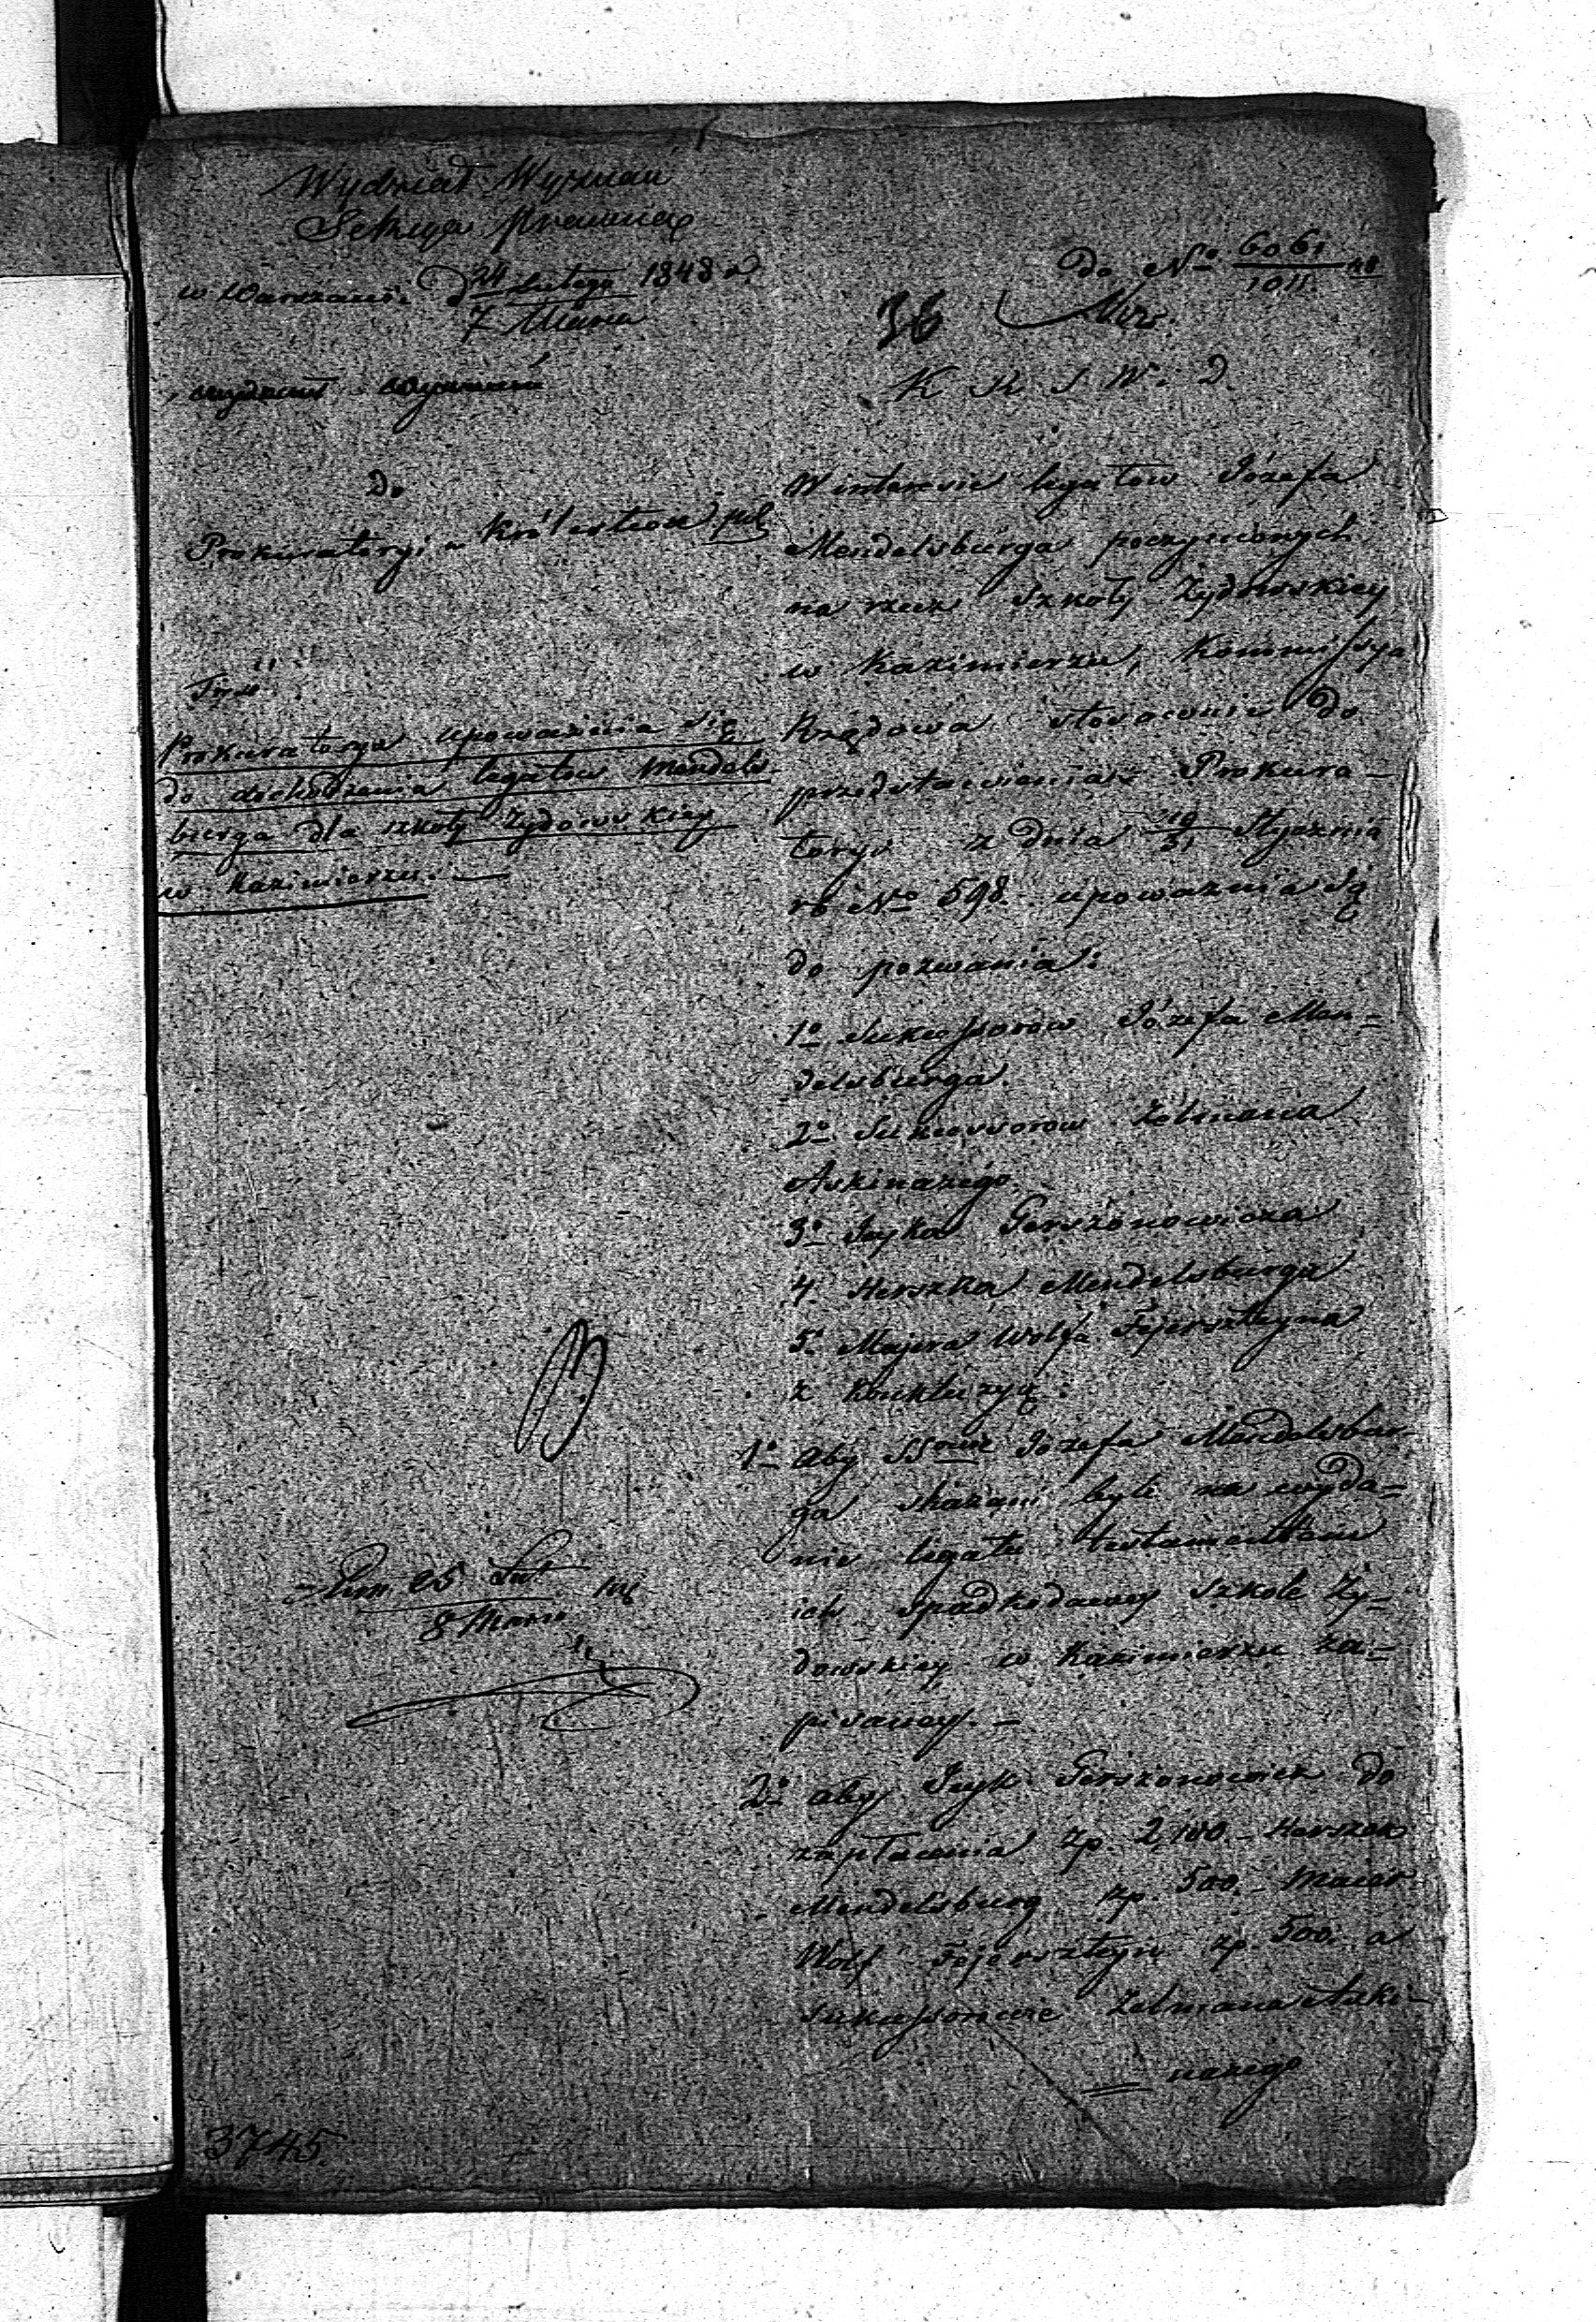 Wydział Wyznań
Sekcya Prawna
w Warszawie d 24 Lutego 1848 r.
7 Marca
Wydział Wyznań
Do
Prokuratoryi w Królestwie pol
Prokuratorya upoważnia się
do dochodzenia legatow Mendels-
burga dla szkoły Żydowskiey
w Kazimierzu. —
25 Lut
8 Marca
3745.
do No 6061/1011 48
36
K R S W. D.
W interesie legatow Józefa
Mendelsburga poczynionych
na rzecz Szkoły Żydowskiey
w Kazimierzu, Kommissya
Rządowa stosownie do
przedstawienia Prokura-
toryi z dnia 19/31 Stycznia
rb No 598. upoważnia Ją
do pozwania:
1o Sukcessorow Józefa Men=
delsburga.
2o Sukcessorow Zelmana
Askinazego.
3o Icyka Gerszonowicza
4. Herszka Mendelsburga
5o Majera Wolfa Fejersztejna
z konkluzyą:
1o Aby SSowie Józefa Mendelsbur-
ga skazani byli na wyda=
nie legatu testamentem
ich spadkodawcy Szkole Ży=
dowskiey w Kazimierzu za=
pisaney. —
2o aby Icyk Gerszonowicz do
zapłacenia zp. 2,100. - Herszek
Mendelsburg zp. 500. - Maier
Wolf Fejersztejn zp. 500. a
sukcessorowie Zelmana Aski-
= nazego